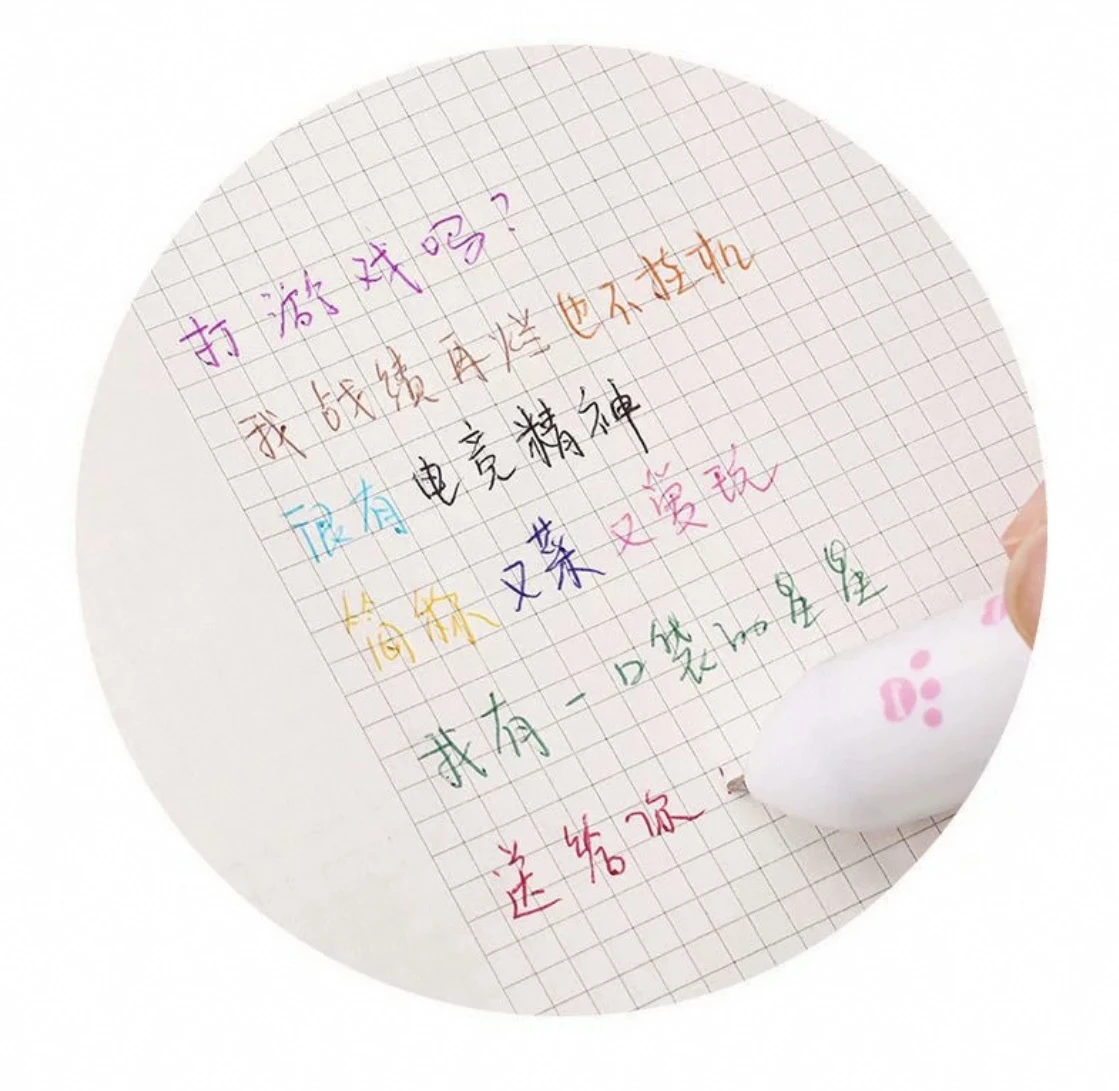 打游戏吗?
我战绩再烂也不挂机
很有电竞精神
简称又菜又爱玩
我有一口袋的星星
送给你